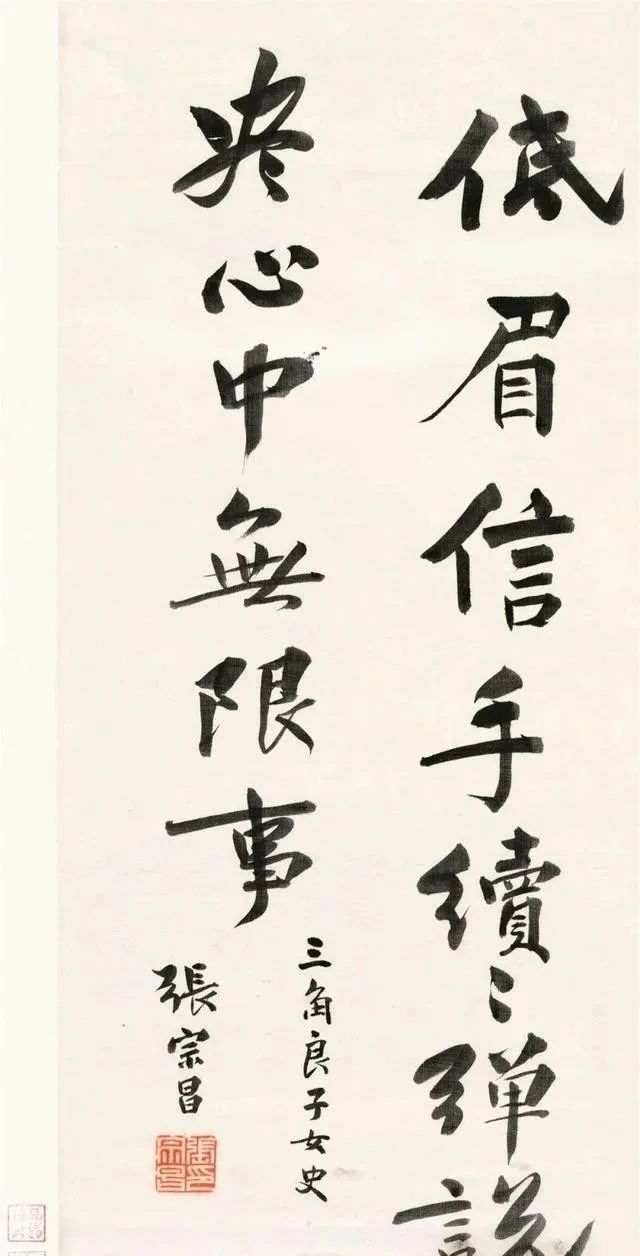 低眉信手續〻彈說
盡心中無限事
三角良子女史
張宗昌
張宗昌印